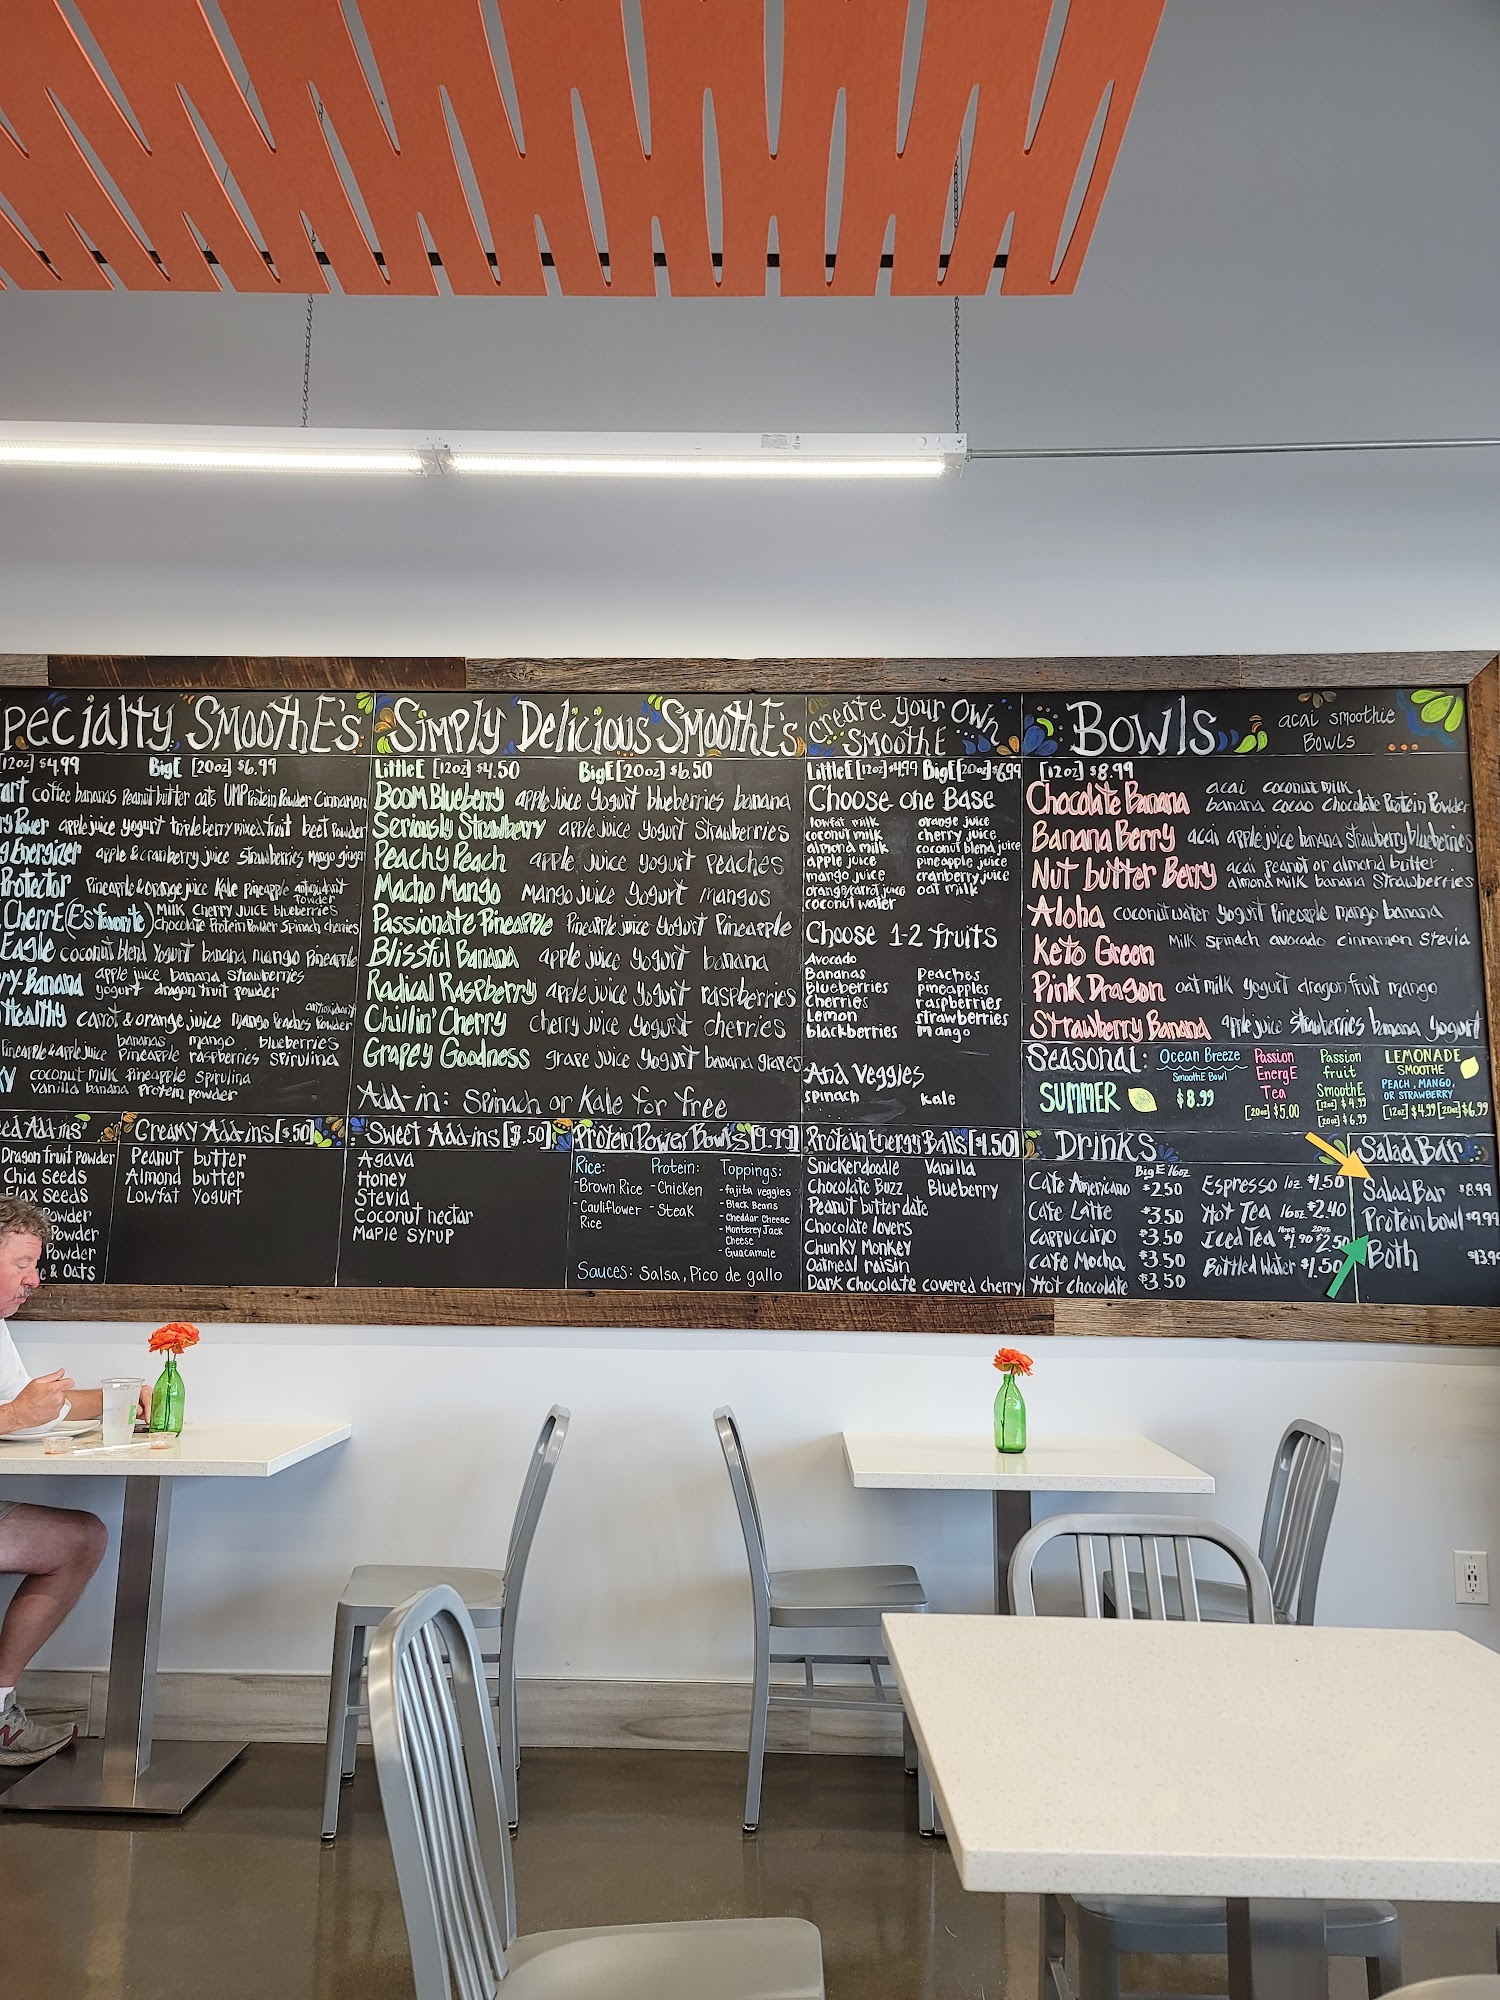 pecialty SmoothE's
[12oz] $4.99 BigE [20oz] $6.99
art coffee bananas Peanut butter oats UMP Protein Powder Cinnamon
ry Power apple juice yogurt triple berry mixed fruit beet Powder
g Energizer apple & cranberry juice strawberries Mango ginger
Protector Pineapple & orange juice kale pineapple antioxidant Powder
CherrE (E's favorite) Milk Cherry Juice blueberries
chocolate Protein Powder Spinach cherries
Eagle coconut blend Yogurt banana mango Pineapple
ry-Banana apple juice banana strawberries
yogurt dragon fruit powder
Healthy carrot & orange juice Mango Peaches antioxidant Powder
bananas mango blueberries
Pineapple & apple juice Pineapple raspberries spirulina
ky coconut milk Pineapple Spirulina
vanilla banana Protein powder
Simply Delicious SmoothE's
LittleE [12oz] $4.50 BigE [20oz] $6.50
Boom Blueberry apple juice Yogurt blueberries banana
Seriously Strawberry apple juice Yogurt Strawberries
Peachy Peach apple juice Yogurt Peaches
Macho Mango Mango juice Yogurt mangos
Passionate Pineapple Pineapple juice Yogurt Pineapple
Blissful Banana apple juice Yogurt banana
Radical Raspberry apple juice Yogurt raspberries
Chillin' Cherry cherry juice Yogurt cherries
Grapey Goodness grape juice Yogurt banana grapes
Add-in: Spinach or Kale for free
Create Your Own
SmoothE
LittleE [12oz] $4.99 BigE [20oz] $6.99
Choose one Base
lowfat milk orange juice
coconut milk cherry juice
almond milk coconut blend juice
apple juice pineapple juice
mango juice cranberry juice
orange/carrot juice oat milk
coconut water
Choose 1-2 fruits
Avocado
Bananas Peaches
Blueberries pineapples
Cherries raspberries
Lemon strawberries
blackberries Mango
And Veggies
spinach kale
Bowls acai smoothie
Bowls
[12oz] $8.99
Chocolate Banana acai coconut milk
banana cacao Chocolate Protein Powder
Banana Berry acai apple juice banana strawberry blueberries
Nut butter Berry acai peanut or almond butter
almond Milk banana strawberries
Aloha coconut water yogurt Pineapple mango banana
Keto Green Milk spinach avocado cinnamon Stevia
Pink Dragon oat milk yogurt dragon fruit mango
Strawberry Banana apple juice strawberries banana yogurt
Seasonal:
Summer
Ocean Breeze
SmoothE Bowl
$8.99
Passion
EnergE
Tea
[20oz] $5.00
Passion
fruit
SmoothE
[12oz] $4.99
[20oz] $6.99
Lemonade
Smoothe
Peach, Mango,
or Strawberry
[12oz] $4.99 [20oz] $6.99
ed Add-ins
Dragon fruit Powder
Chia Seeds
Flax Seeds
Powder
Powder
Powder
e & Oats
Creamy Add-ins [$.50]
Peanut butter
Almond butter
Lowfat Yogurt
Sweet Add-ins [$.50]
Agava
Honey
Stevia
Coconut nectar
Maple syrup
Protein Power Bowls [9.99]
Rice: Protein: Toppings:
-Brown Rice -Chicken -fajita veggies
-Cauliflower -Steak -Black Beans
Rice -Cheddar Cheese
-Monterey Jack
Cheese
-Guacamole
Sauces: Salsa, Pico de gallo
Protein Energy Balls [$1.50]
Snickerdoodle Vanilla
Chocolate Buzz Blueberry
Peanut butter date
Chocolate lovers
Chunky Monkey
Oatmeal raisin
Dark Chocolate covered cherry
Drinks
BigE 16oz
Cafe Americano $2.50 Espresso 1oz $1.50
Cafe Latte $3.50 Hot Tea 16oz $2.40
Cappuccino $3.50 Iced Tea 16oz $1.90 20oz $2.50
Cafe Mocha $3.50 Bottled Water $1.50
Hot Chocolate $3.50
Salad Bar
Salad Bar $8.99
Protein bowl $9.99
Both $13.9